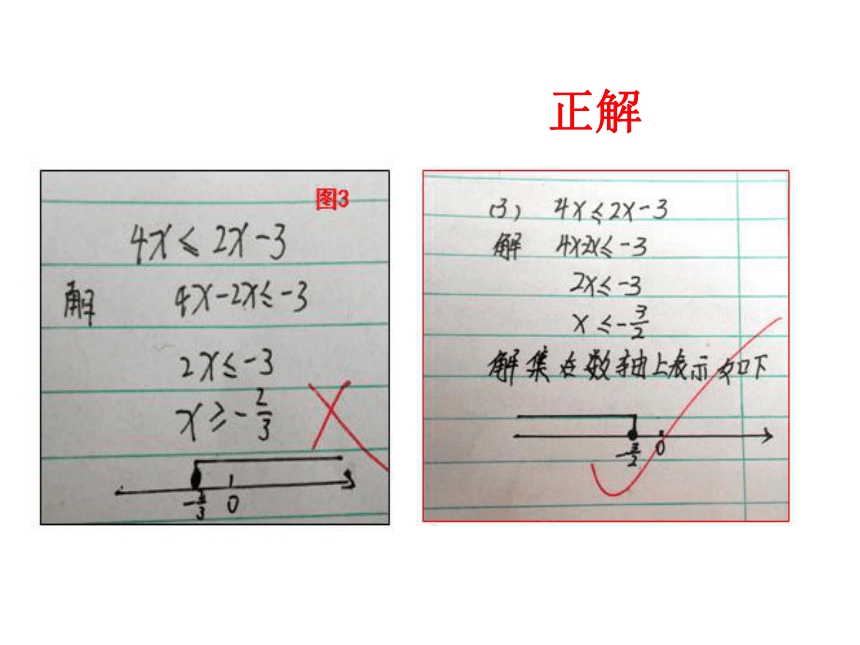 正解
图3
4x≤2x-3
解 4x-2x≤-3
2x≤-3
x≥-2/3
-2/3 0
(3) 4x≤2x-3
解 4x-2x≤-3
2x≤-3
x≤-3/2
解集在数轴上表示如下
-3/2 0